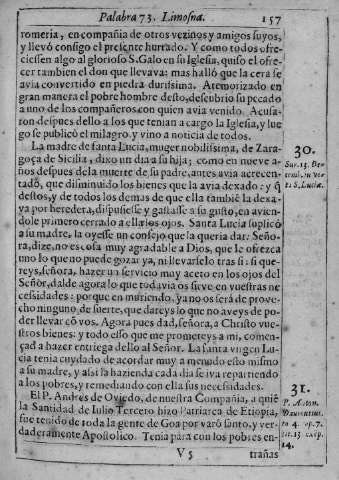 Palabra 73. Limosna. 157
romeria, en compañia de otros vezinos y amigos suyos,
y llevó consigo el presente hurtado. Y como todos ofre-
ciessen algo al glorioso S. Galo en su Iglesia, quiso el ofre-
cer tambien el don que llevava: mas halló que la cera se
avia convertido en piedra durissima. Atemorizado en
gran manera el pobre hombre desto, descubrio su pecado
a uno de los compañeros con quien avia venido. Acusa-
ron despues dello a los que tenian a cargo la Iglesia, y lue-
go se publicó el milagro, y vino a noticia de todos.
La madre de santa Lucia, muger nobilissima, de Zara-
goça de Sicilia, dixo un dia a su hija; como en nueve a-
ños despues de la muerte de su padre, antes avia acrecen-
tado, que disminuido los bienes que la avia dexado: y q̃
destos, y de todos los demas de que ella tambiē la dexa-
va por heredera, dispusiesse y gastasse a su gusto, en avien-
dole primero cerrado a ella los ojos. Santa Lucia suplicó
a su madre, la oyesse un consejo que la queria dar: Seño-
ra, dize, no es cosa muy agradable a Dios, que le ofrezca
uno lo que no puede gozar ya, ni llevarselo tras si: si que-
reys, señora, hazer un servicio muy aceto en los ojos del
Señor, dalde agora lo que todavia os sieve en vuestras ne-
cessidades: porque en muriendo, ya no os será de prove-
cho ninguno de suerte, que dareys lo que no aveys de po-
der llevar cō vos. Agora pues dad, señora, a Christo vue-
stros bienes: y todo esso que me prometeys a mi, comen-
çad a hazer entrega dello al Señor. La santa virgen Lu-
cia tenia cuydado de acordar muy a menudo esto mismo
a su madre, y assi la hazienda cada dia se iva repartiendo
a los pobres, y remediando con ella sus necessidades.
El P. Andres de Oviedo, de nuestra Compañia, a quiē
la Santidad de Iulio Tercero hizo Patriarca de Etiopia,
fue tenido de toda la gente de Goa por varō santo, y ver-
daderamente Apostolico. Tenia para con los pobres en-
V 5 trañas
30.
Sur. 13. De-
S. Lucia.
31.
P. Anton.
to 4. op. 7.
tit. 13 cap.
14.